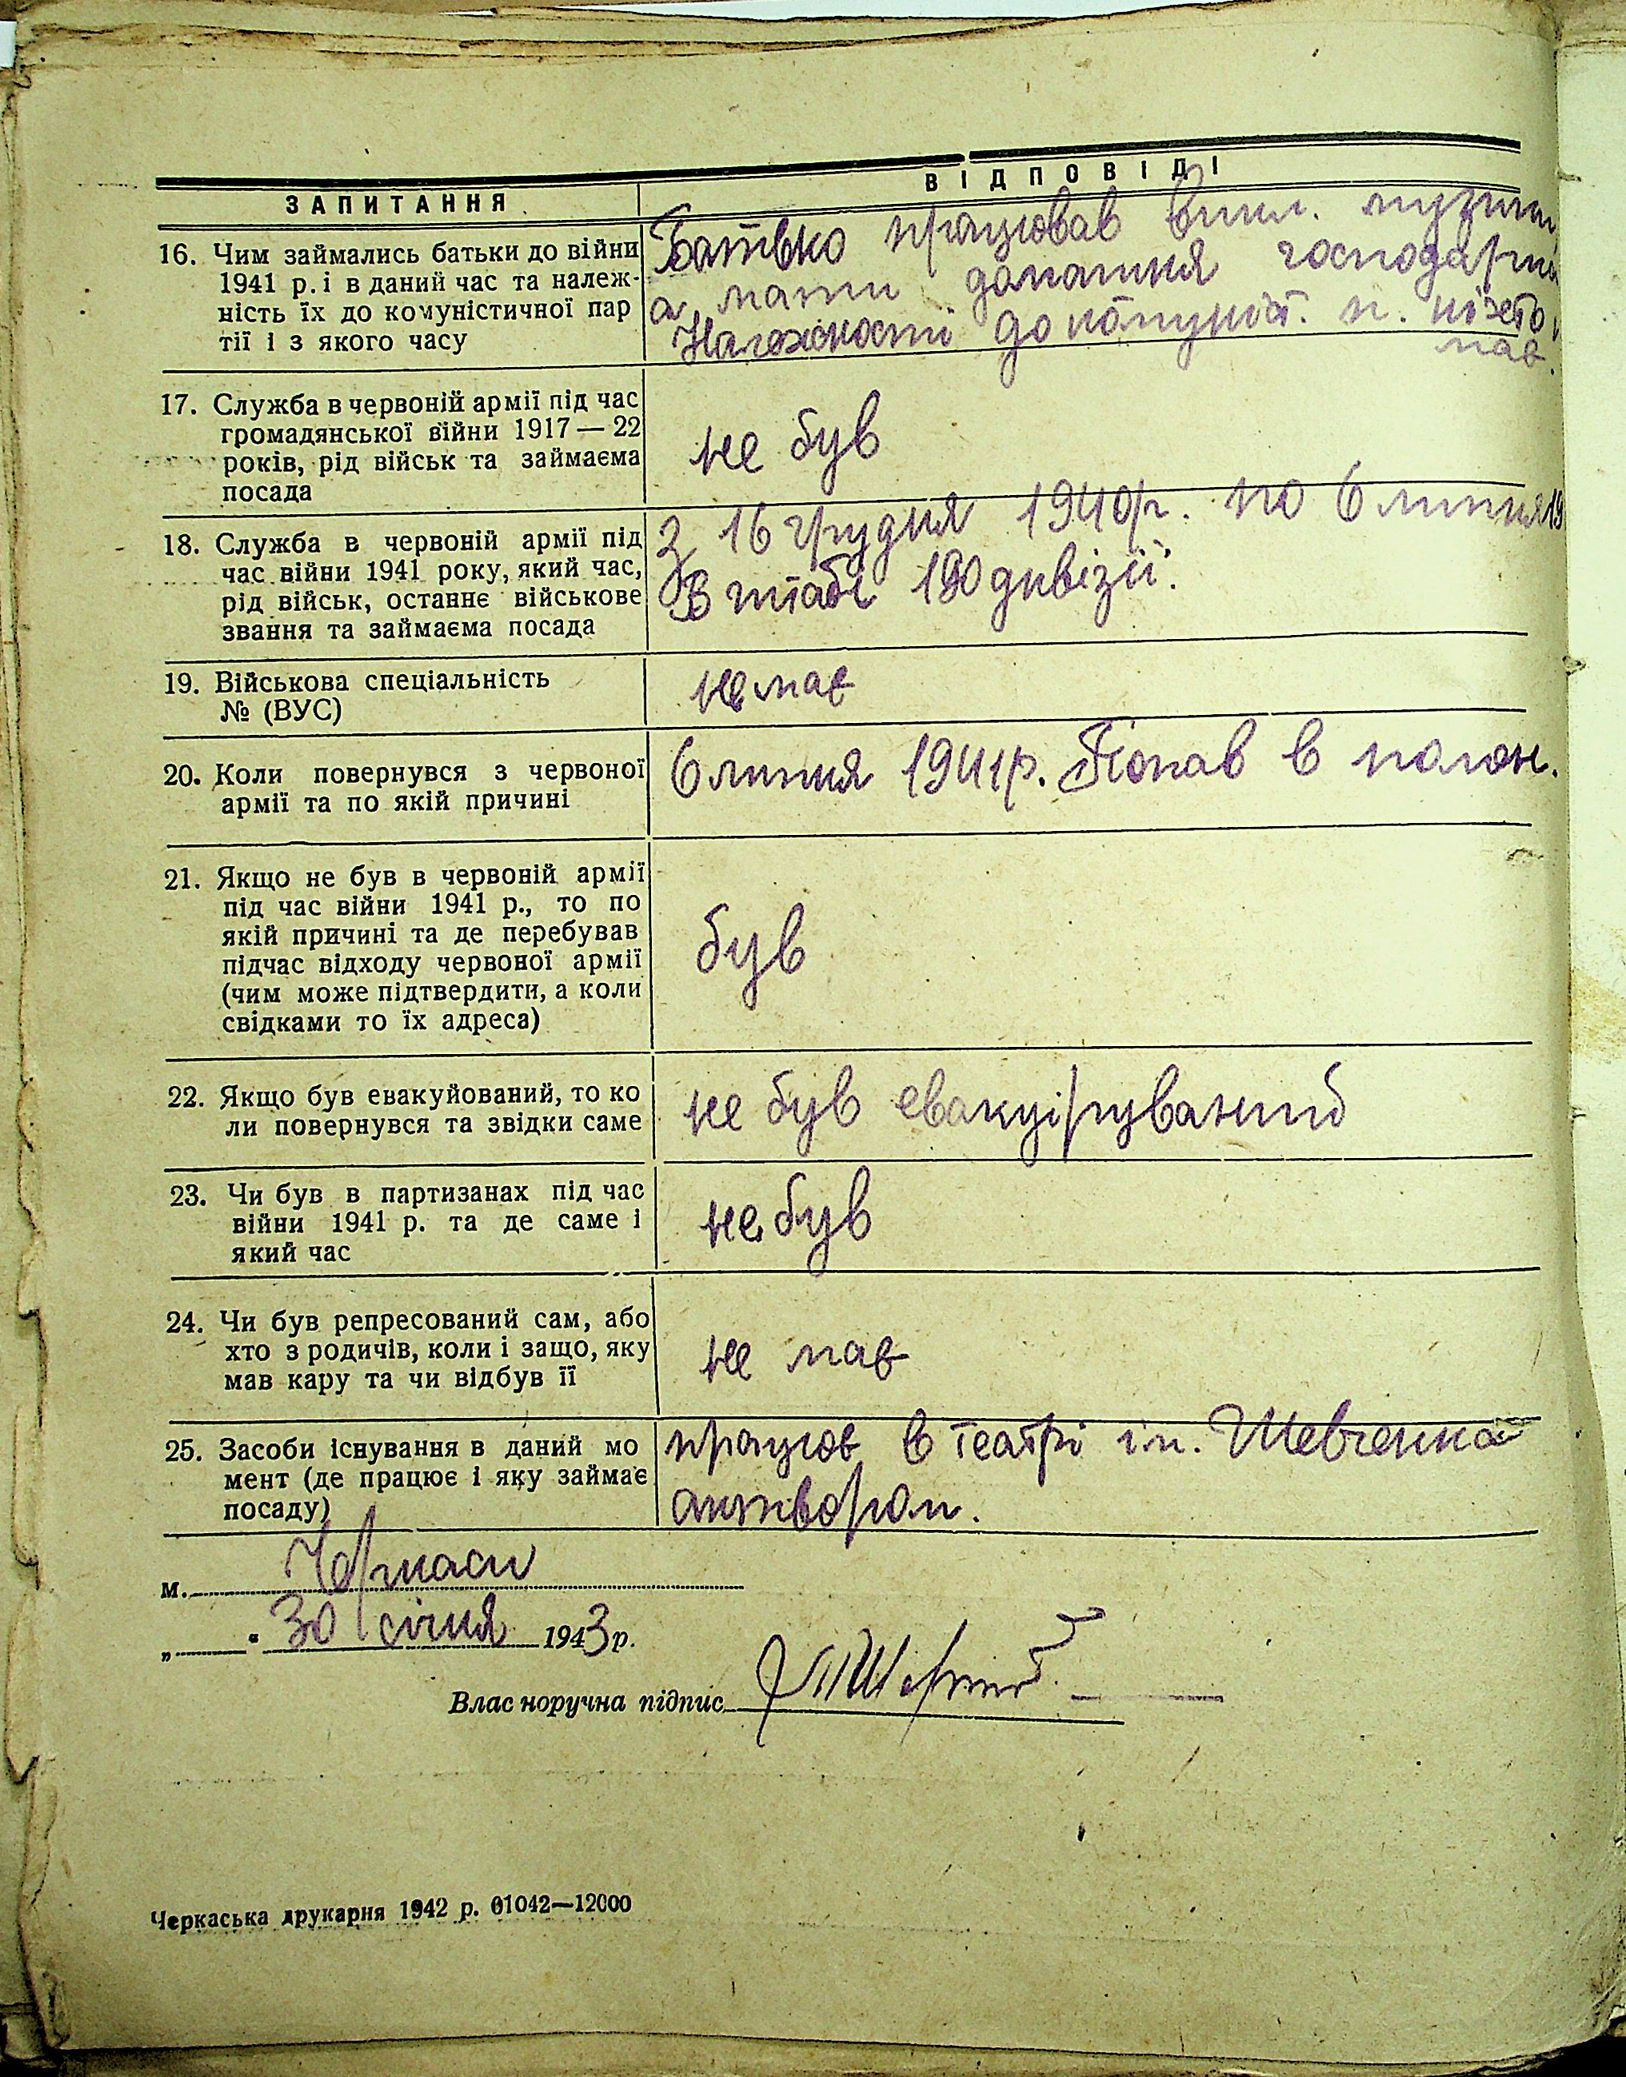 ЗАПИТАННЯ
ВІДПОВІДІ
16. Чим займались батьки до війни
1941 р. і в даний час та належ-
ність їх до комуністичної пар
тії і з якого часу
Батько працював викл. музики
а мати домашня господарка
Належності до комуніст. п. ніхто не
мав.
17. Служба в червоній армії під час
громадянської війни 1917—22
років, рід військ та займаєма
посада
не був
18. Служба в червоній армії під
час війни 1941 року, який час,
рід військ, останнє військове
звання та займаєма посада
З 16 грудня 1940р. по 6 липня 19
В штабі 190 дивізії.
19. Військова спеціальність
№ (ВУС)
немає
20. Коли повернувся з червоної
армії та по якій причині
6 липня 1941р. Попав в полон.
21. Якщо не був в червоній армії
під час війни 1941 р., то по
якій причині та де перебував
підчас відходу червоної армії
(чим може підтвердити, а коли
свідками то їх адреса)
був
22. Якщо був евакуйований, то ко
ли повернувся та звідки саме
не був евакуіруваний
23. Чи був в партизанах під час
війни 1941 р. та де саме і
який час
не був
24. Чи був репресований сам, або
хто з родичів, коли і защо, яку
мав кару та чи відбув її
не мав
25. Засоби існування в даний мо
мент (де працює і яку займає
посаду)
працюв в театрі ім. Шевченка
актьором.
м. Черкаси
„ “ 30 січня 1943 р.
Власноручна підпис
Черкаська друкарня 1942 р. 01042—12000